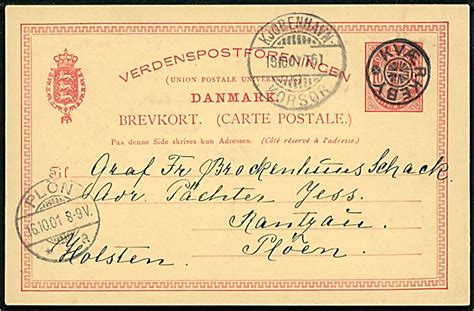 VERDENSPOSTFORENINGEN
(UNION POSTALE UNIVERSELLE)
DANMARK
BREVKORT. (CARTE POSTALE.)
Paa denne Side skrives kun Adressen. (Côté réservé à l'adresse.)
KJØBENHAVN
KORSØR
KVÆRKEBY
Til
Graf Fr Brockenhuus Schack.
Adr. Pächter Jess.
Rantzau
Plöen
Holsten
PLÖN
16.10.01 8-9V.